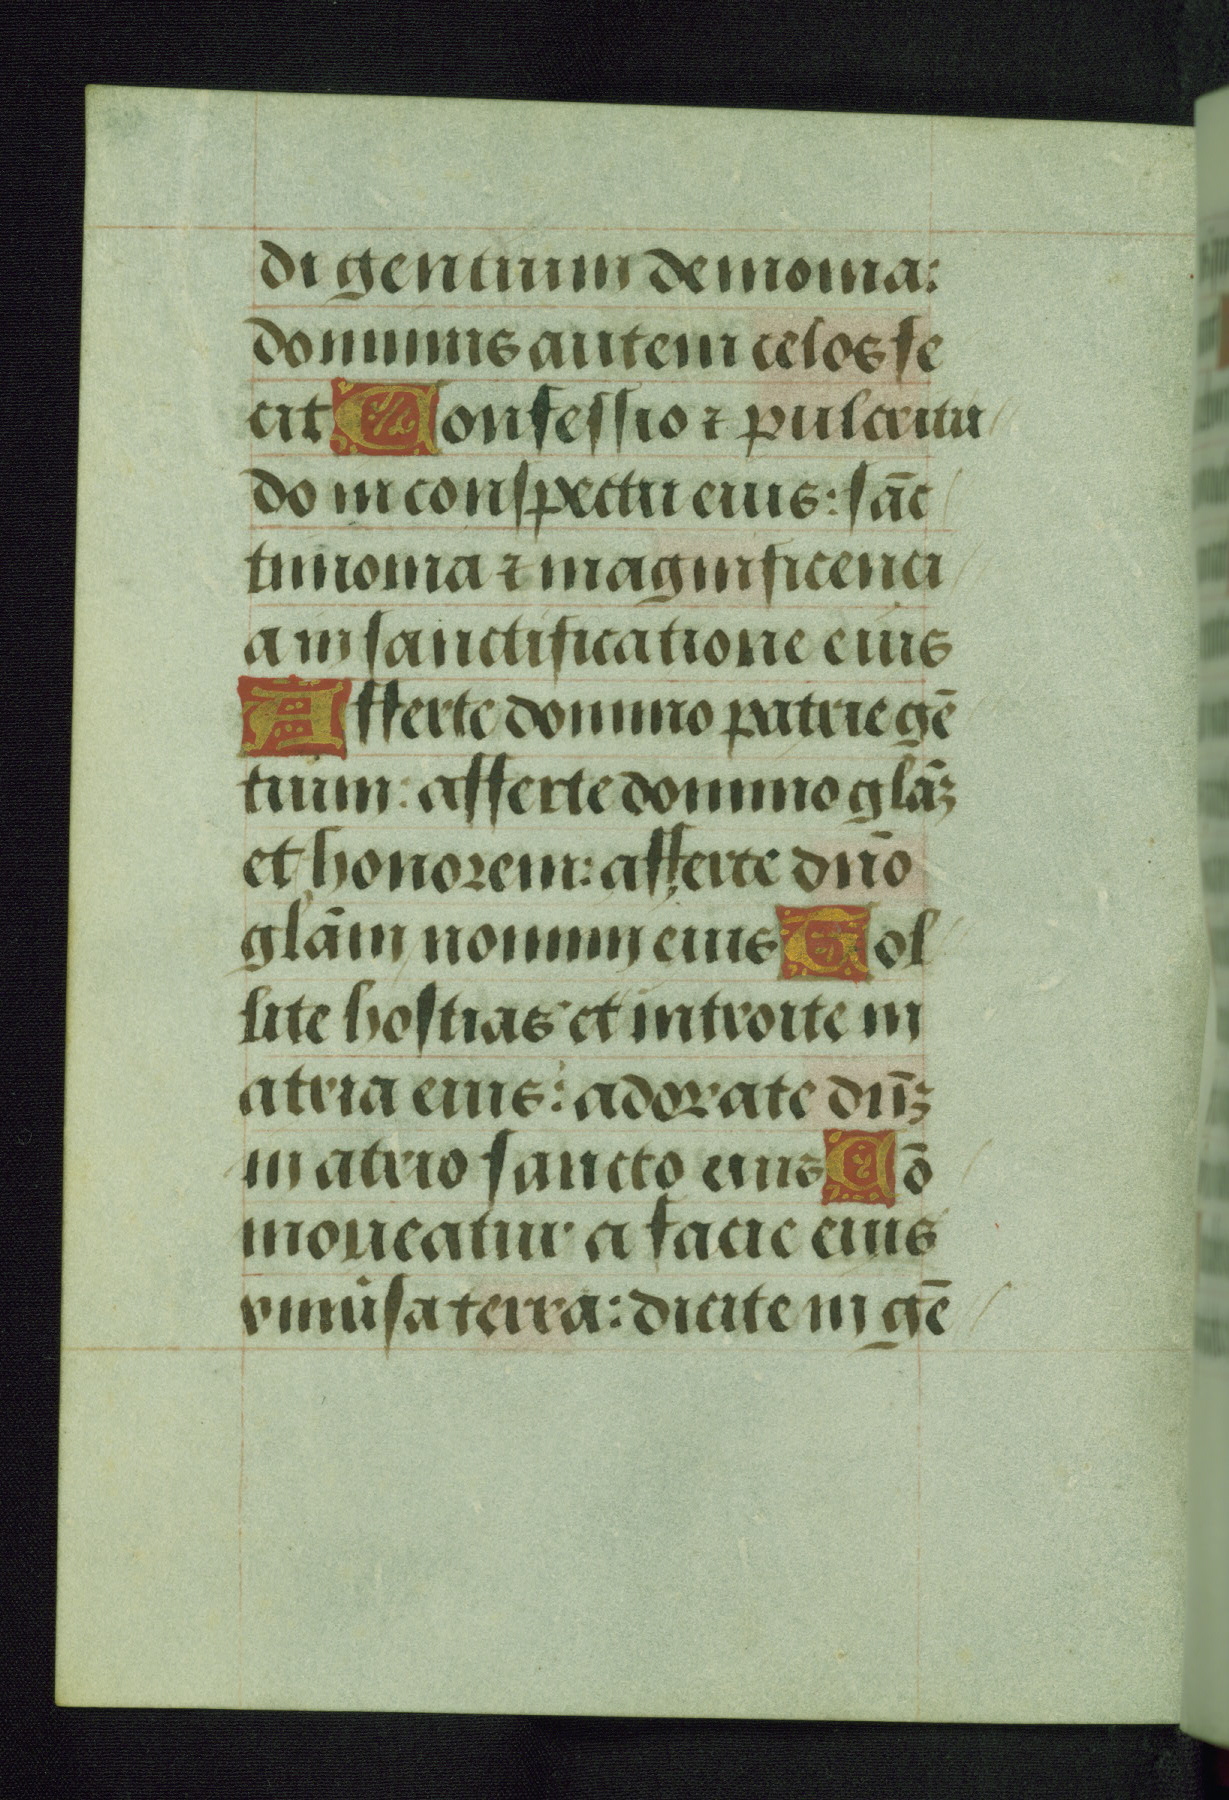 di gentium demonia:
dominus autem celos fe
cit Confessio ⁊ pulcritu
do in conspectu eius: sāc
timonia ⁊ magnificenci
a in sanctificatione eius
Afferte domino patrie gē
tium: afferte domino glāꝫ
et honorem: afferte dn̄o
glām nomini eius Tol
lite hostias et introite in
atria eius: adorate dn̄ꝫ
in atrio sancto eius Cō
moueatur a facie eius
vniūsa terra: dicite in gē